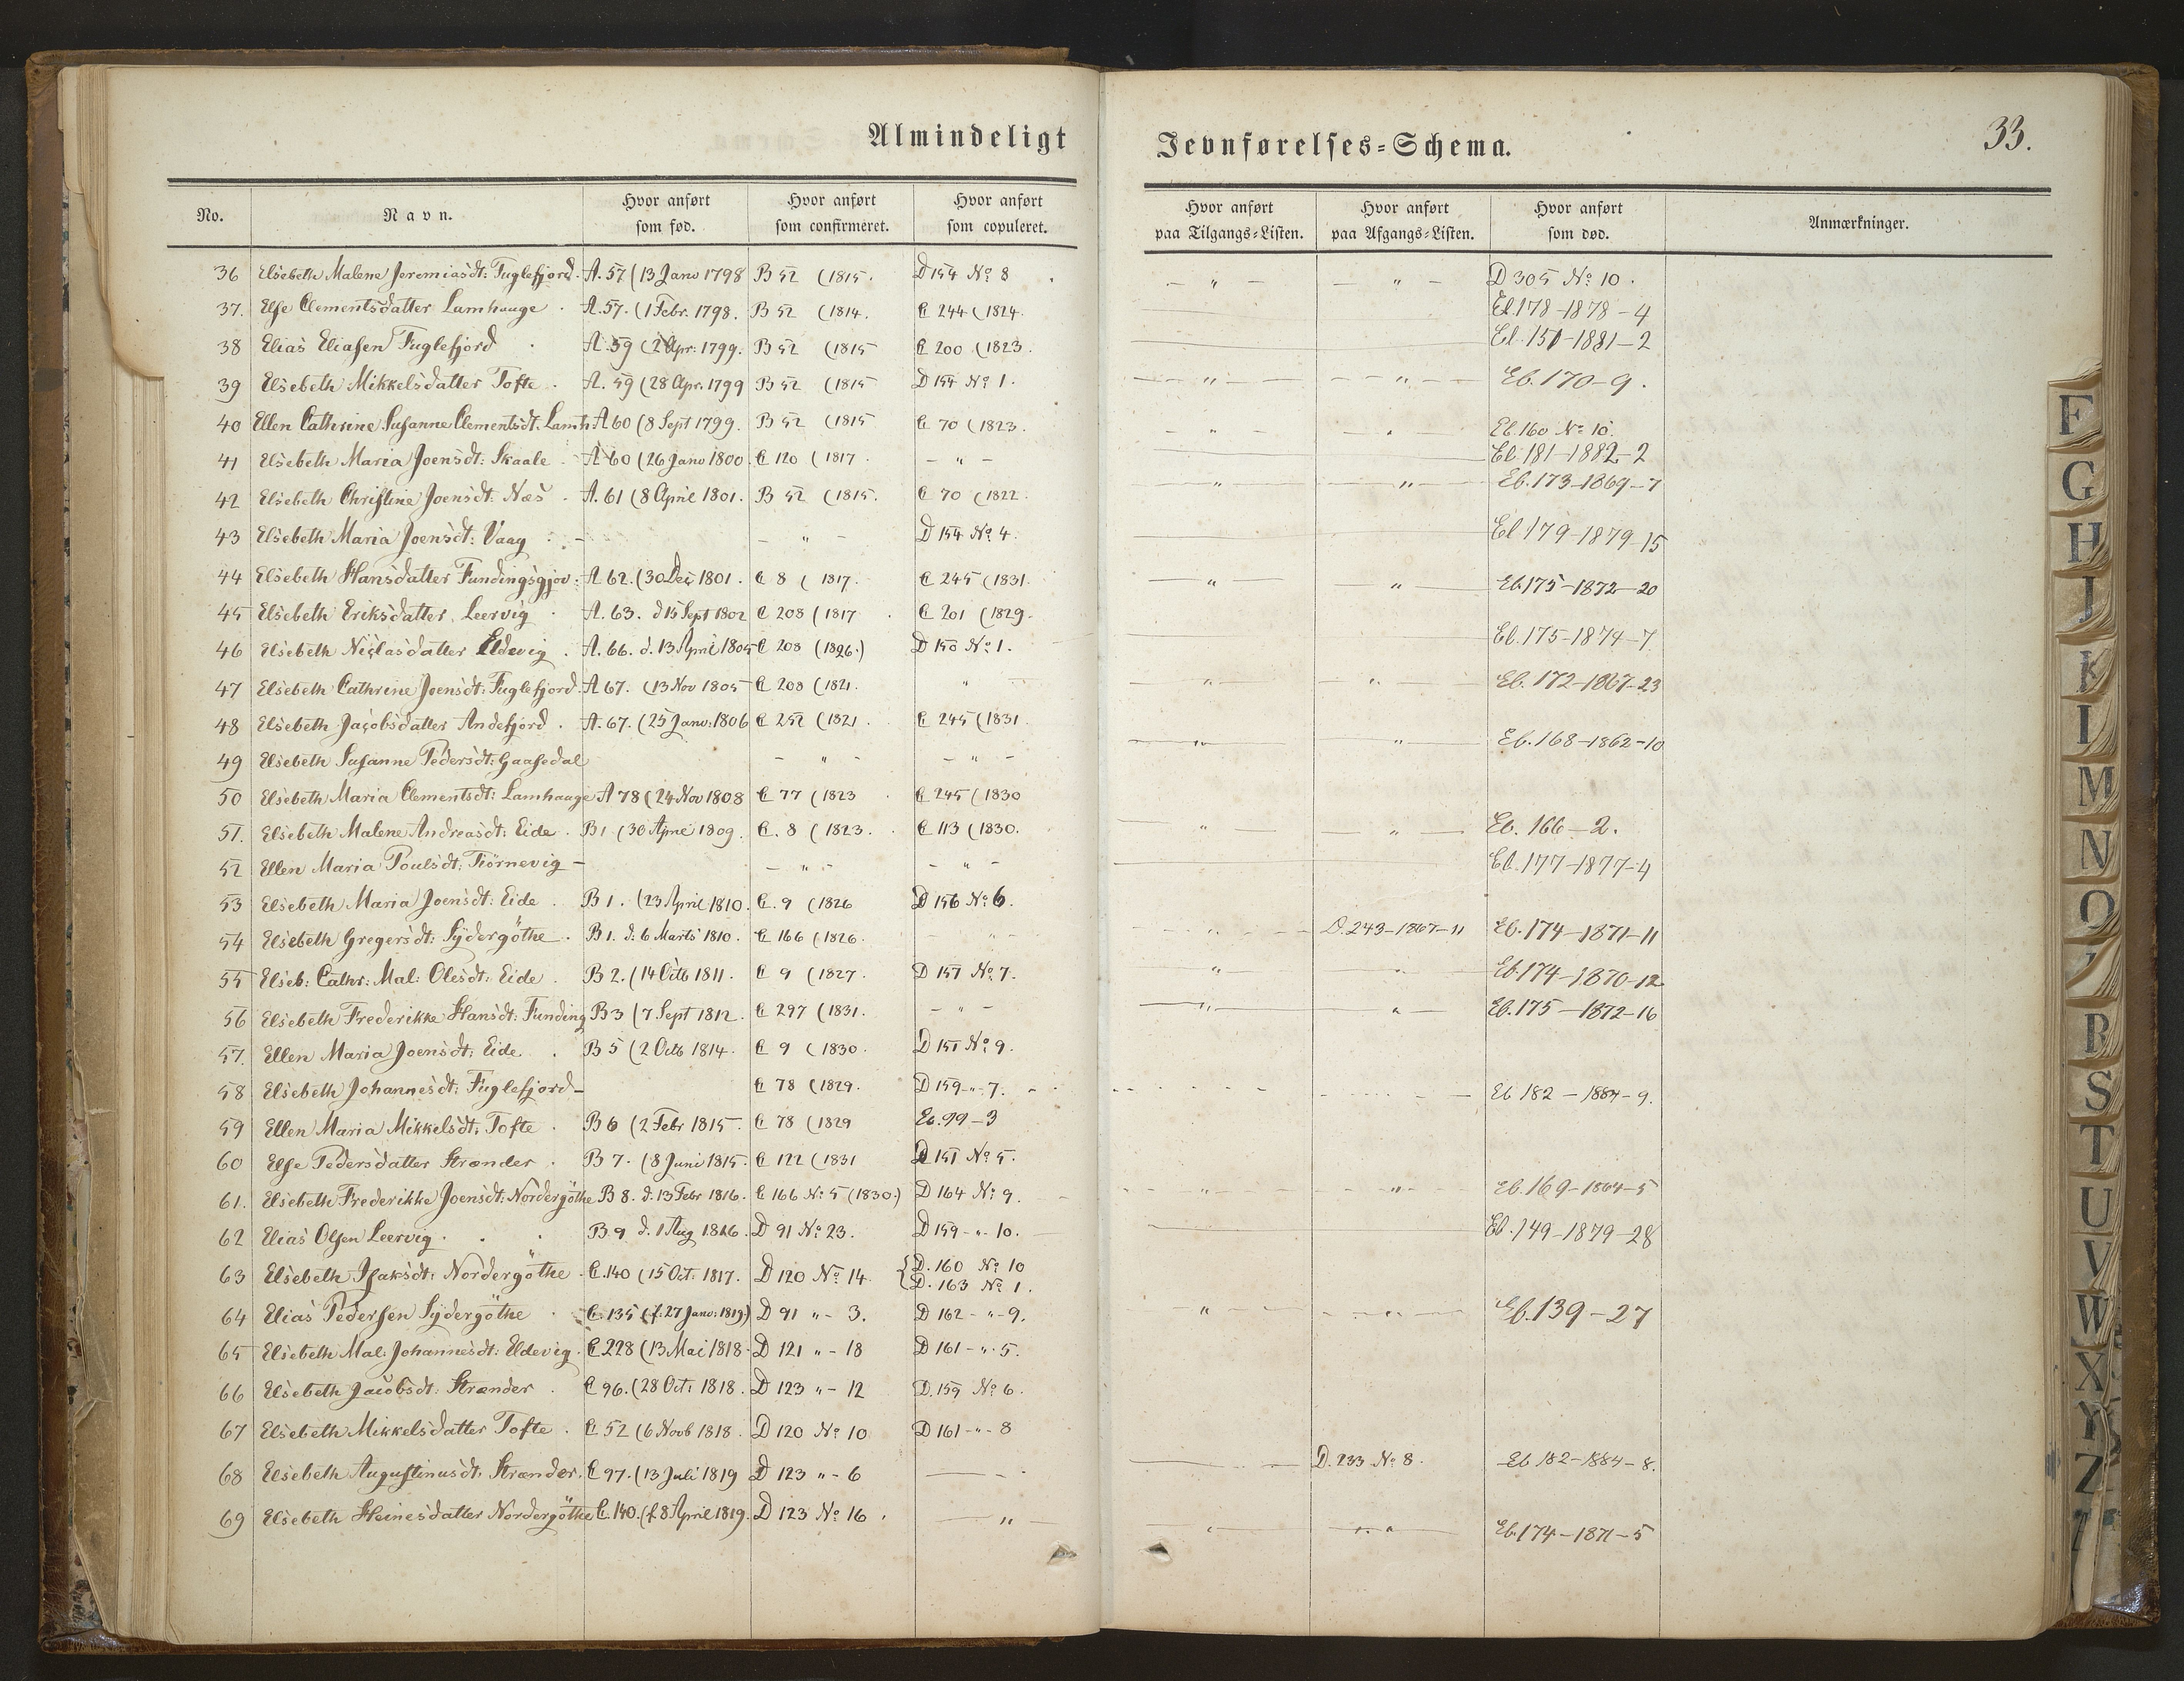 Almindeligt Jevnførelses=Schema. 33.
No. Navn. Hvor anført som fød. Hvor anført som confirmeret. Hvor anført som copuleret. Hvor anført paa Tilgangs=Listen. Hvor anført paa Afgangs=Listen. Hvor anført som død. Anmærkninger.
36 Elsebeth Malene Jeremiasdt: Fuglefjord. A. 57 (13 Janv 1798 B 52 (1815. D 154 No 8 — " — — " — D 305 No 10.
37. Else Clementsdatter Lamhauge. A. 57. (1 Febr. 1798. B 52 (1814. C 244 (1824. El. 178-1878-4
38 Elias Eliasen Fuglefjord. A. 59 (2 Apr: 1799. B 52 (1815 C 200 (1823. El. 151-1881-2
39 Elsebeth Mikkelsdatter Tofte. A. 59 (28 Apr. 1799 B 52 (1815 D 154 No 1. — " — — " — Eb. 170-9.
40 Ellen Cathrine Susanne Clementsdt. Lamh A 60 (8 Sept 1799. B 52 (1815 C 70 (1823. — " — — " — Eb. 160 No 10.
41 Elsebeth Maria Joensdt: Skaale. A 60 (26 Janv 1800. C 120 (1817. — " — El. 181-1882-2
42 Elsebeth Christine Joensdt: Næs. A. 61 (8 April 1801. B 52 (1815. C 70 (1822. — " — — " — Eb. 173-1869-7
43 Elsebeth Maria Joensdt: Vaag. — — " — D 154 No 4. El 179-1879-15
44 Elsebeth Hansdatter Fundingsgjov: A 62. (30 Dec 1801. C 8 (1817. C 245 (1831. — " — — " — Eb. 175-1872-20
45 Elsebeth Eriksdatter Leervig. A. 63. d 15 Sept 1802 C 208 (1817. C 201 (1829.
46 Elsebeth Niclasdatter Eldevig. A. 66. d. 13 April 1805 C 208 (1826.) D 158 No 1. El. 175-1874-7
47 Elsebeth Cathrine Joensdt: Fuglefjord. A 67. (13 Nov 1805 C 208 (1821. " — " — — " — Eb. 172-1867-23
48 Elsebeth Jacobsdatter Andefjord. A. 67. (25 Janv: 1806 C 252 (1821. C 245 (1831.
49 Elsebeth Susanne Pedersdt: Gaasedal — " — — " — — " — — " — Eb. 168-1862-10
50 Elsebeth Maria Clementsdt: Lamhauge A 78 (24 Nov 1808 C 77 (1823. C 245 (1830
51. Elsebeth Malene Andreasdt: Eide. B 1 (30 April 1809. C. 8 (1823. C 113 (1830. — " — — " — Eb. 166-2.
52 Ellen Maria Poulsdt: Tiörnevig — — " — — " — El. 177-1877-4
53 Elsebeth Maria Joensdt: Eide. B 1. (23 April 1810. C. 9 (1826 D 156 No 6.
54 Elsebeth Gregersdt: Sydergöthe. B 1. d: 6 Marts 1810. C 166 (1826. — " — — " — D. 243-1867-11 Eb. 174-1871-11
55 Elseb: Cathr: Mal: Olesdt: Eide. B 2. (14 Octb 1811. C 9 (1827. D 157 No 7. — " — — " — Eb. 174-1870-12
56 Elsebeth Frederikke Hansdt: Funding B 3 (7 Sept 1812. C 297 (1831. — " — — " — — " — Eb. 175-1872-16
57. Ellen Maria Joensdt: Eide. B 5 (2 Octb 1814. C 9 (1830. D 151 No 9.
58 Elsebeth Johannesdt: Fuglefjord — C 78 (1829. D 159 - " - 7. Eb 182-1884-9.
59 Ellen Maria Mikkelsdt: Tofte. B 6 (2 Febr 1815. C 78 (1829 Eb. 99-3
60 Else Pedersdatter Strænder. B 7. (8 Juni 1815. C 122 (1831 D 151 No 5.
61. Elsebeth Frederikke Joensdt: Nordergöthe B 8. d. 13 Febr 1816. C 166 No 5 (1830.) D 164 No 9. — " — — " — Eb. 169-1864-5
62 Elias Olsen Leervig. B. 9 d. 1 Aug 1816. D 91 No 23. D 159 - " - 10. El. 149-1879-28
63 Elsebeth Isaksdt: Nordergöthe. C. 140 (15 Oct: 1817. D 120 No 14 {D. 160 No 10
{D. 163 No 1.
64 Elias Pedersen Sydergöthe. C. 135 (f: 27 Janv: 1819) D 91 " - 3. D 162 - " - 9. — " — — " — Eb. 139-27
65 Elsebeth Mal: Johannesdt: Eldevig. C 228 (13 Mai 1818. D 121 " - 18 D 161 - " - 5.
66 Elsebeth Jacobsdt: Strænder. C 96. (28 Oct: 1818. D 123 " - 12 D. 159 No 6.
67 Elsebeth Mikkelsdatter Tofte. C 52 (6 Novb 1818. D 120 No 10 D 161 - " - 8
68 Elsebeth Augustinusdt: Strænder. C 97. (13 Juli 1819 D 123 " - 6 — — D. 233 No 8. Eb 182-1884-8.
69 Elsebeth Heinesdatter Nordergöthe C. 140. (f. 8 April 1819. D 123 No 16. — " — — " — — " — Eb. 174-1871-5
F
G
H
J
K
I
M
N
O
R
S
T
U
V
W
X
Y
Z